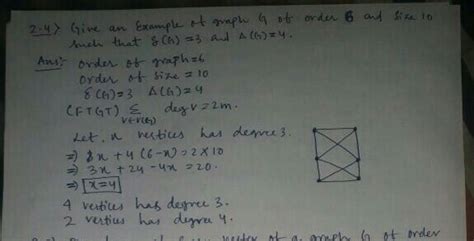 2.4) Give an Example of graph G of order 6 and size 10
such that δ(G)=3 and Δ(G)=4.
Ans:- order of graph=6
order of size = 10
δ(G)=3 Δ(G)=4
(FTGT) Σ deg v = 2m.
v∈V(G)
Let, x vertices has degree 3.
⇒ 3x + 4(6-x) = 2×10
⇒ 3x + 24 - 4x = 20.
⇒ x=4
4 vertices has degree 3.
2 vertices has degree 4.
vertex of a graph G of order